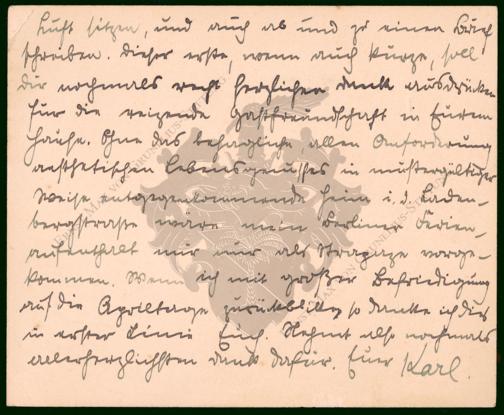 Luft sitzen, und auch ab und zu einen Brief
schreiben. Dieser erste, wenn auch kurze, soll
Dir nochmals recht herzlichen Dank ausdrücken
für die reizende Gastfreundschaft in Eurem
Hause. Ohne das behagliche, allen Anforderung
aesthetischen Lebensgenusses in mustergültiger
Weise entgegenkommende Heim i. d. Laden-
bergstrasse wäre mein Berliner Ferien-
aufenthalt mir nur als Strapaze vorge-
kommen. Wenn ich mit großer Befriedigung
auf die Apriltage zurückblicke, so danke ich dies
in erster Linie Euch. Nehmt also nochmals
allerherzlichsten Dank dafür. Euer Karl.